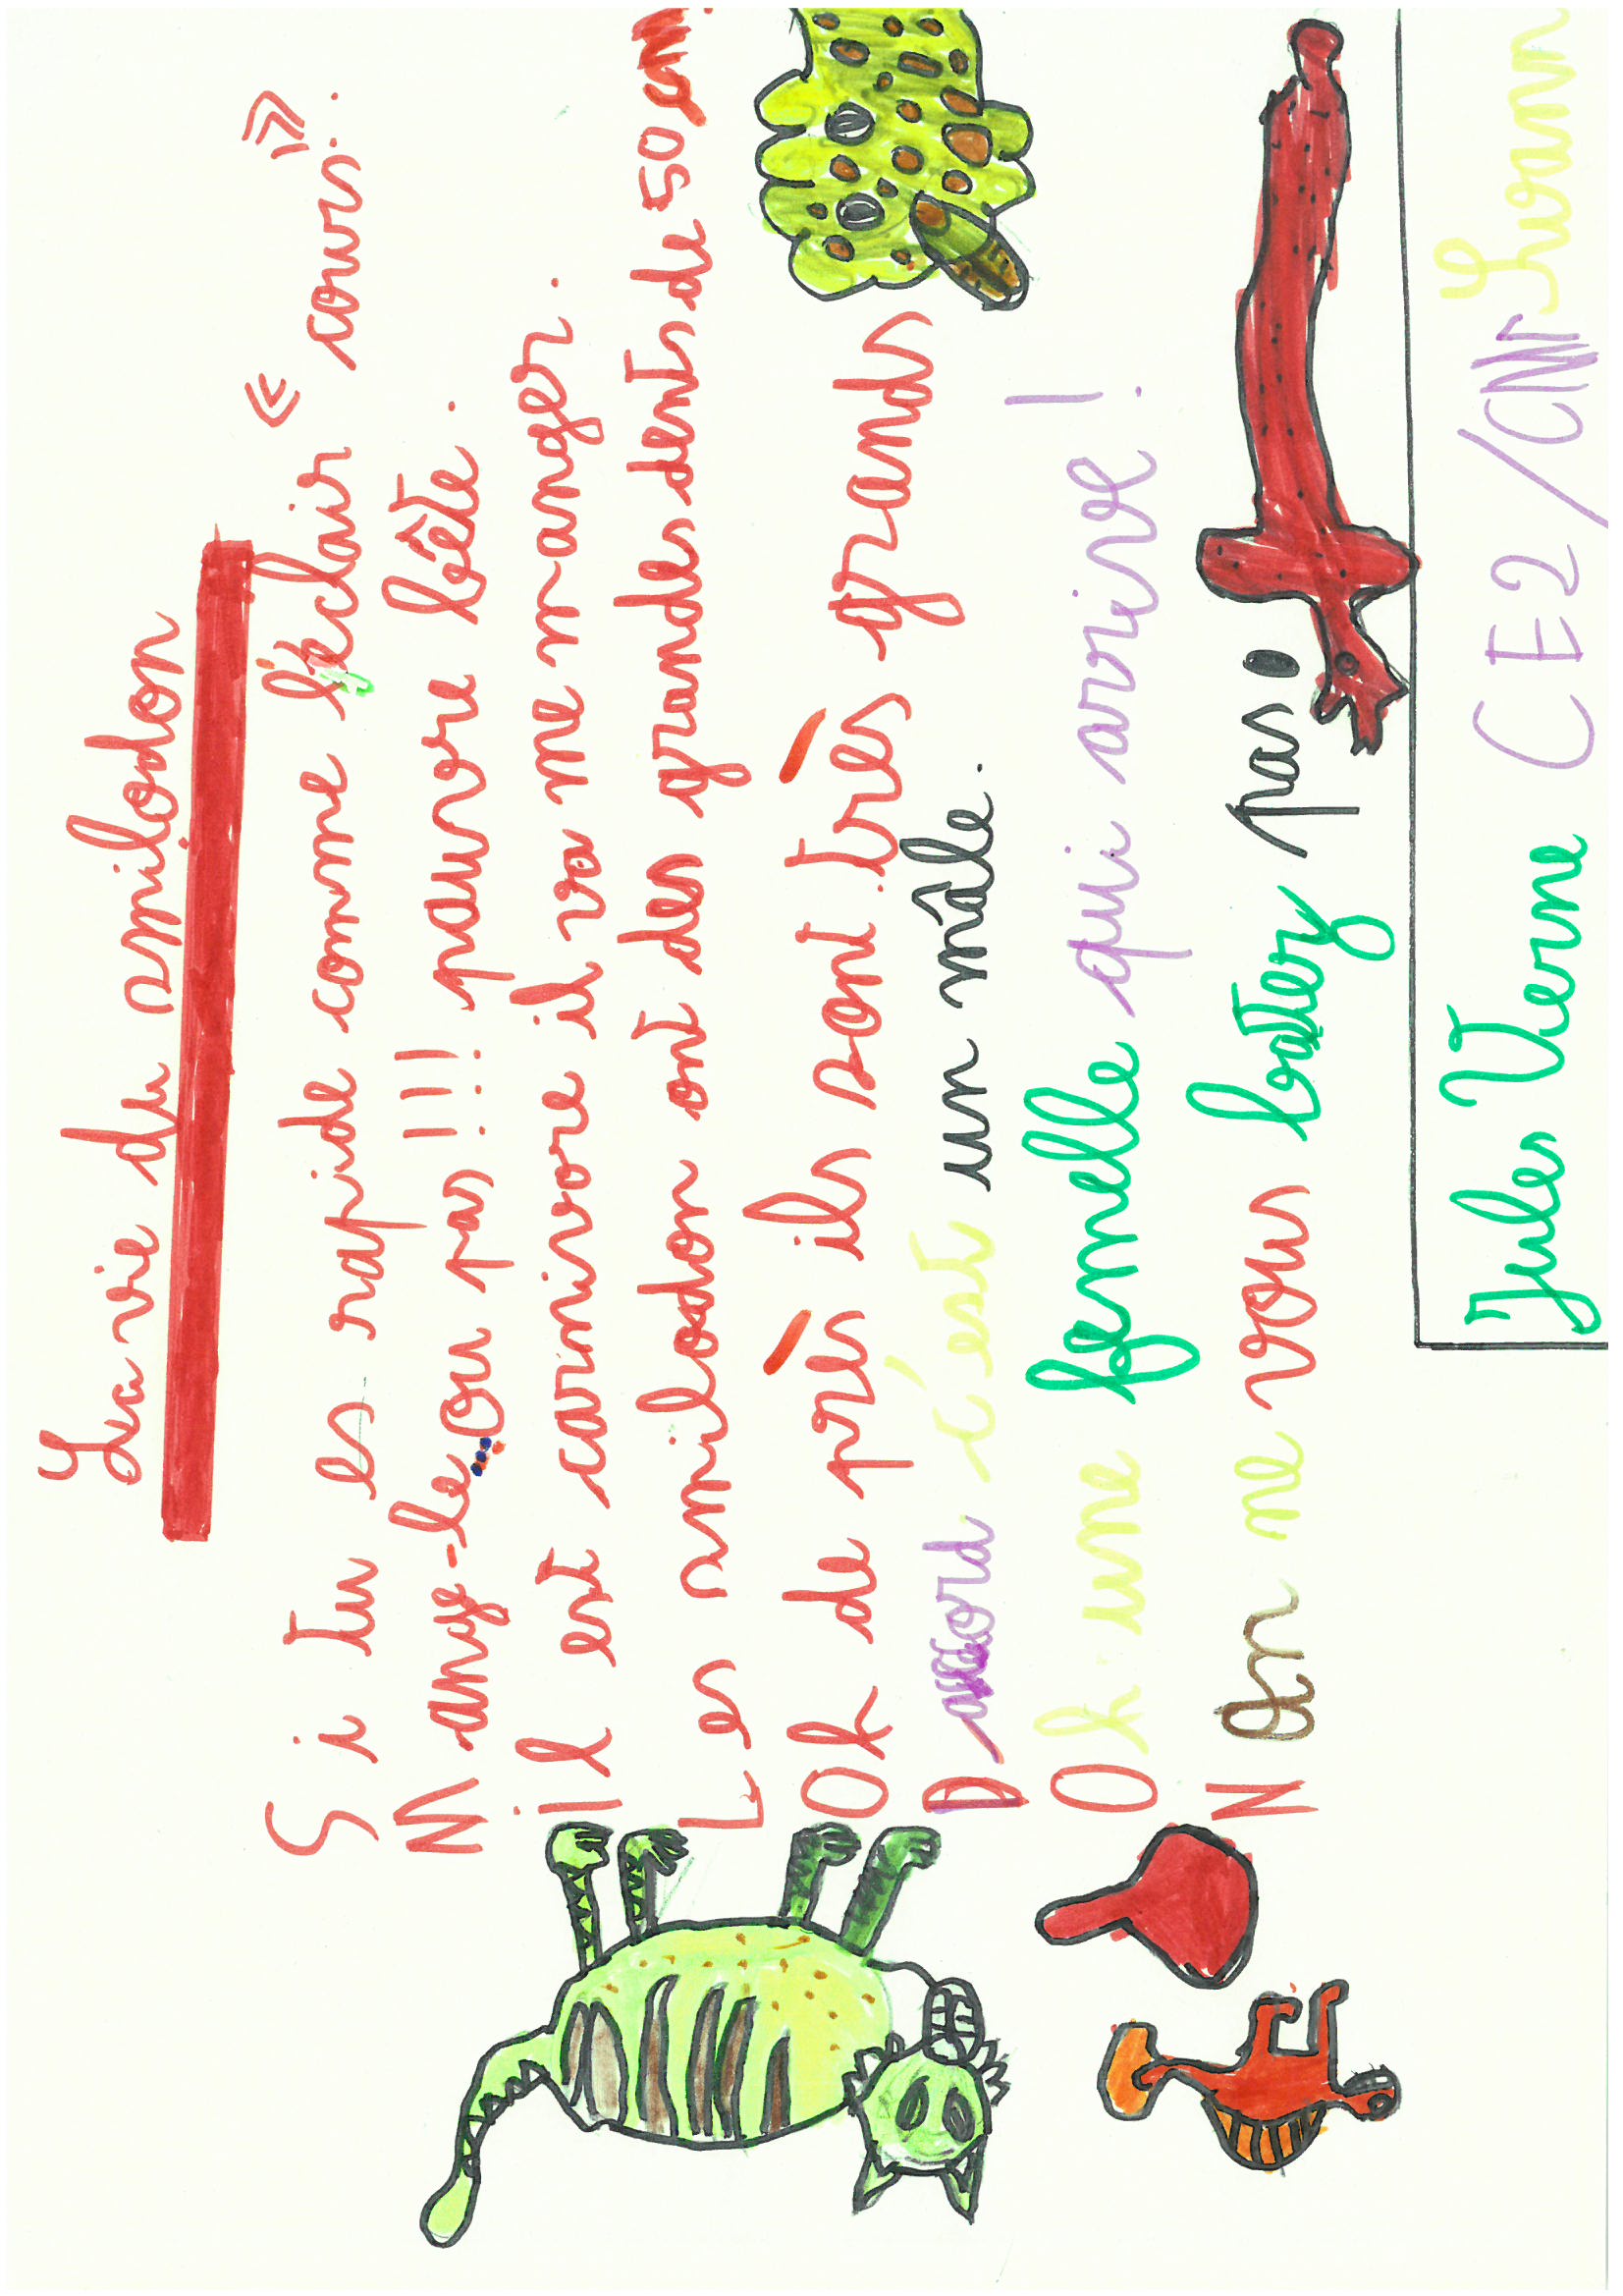 La vie du smilodon
Si tu es rapide comme l'éclair « cours. »
Mange-le ou pas !!! pauvre bête.
il est carnivore il va me manger.
Les smilodon ont des grandes dents de 50 cm.
Oh de près ils sont très grands
Daccord c'est un mâle.
Oh une femelle qui arrive !
N on ne vous batery pas.
Jules Verne CE2/CM1 Lwann